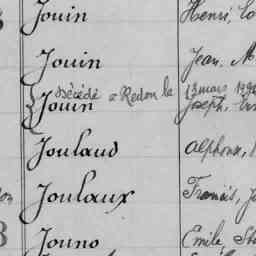 Jouin Henri,
Jouin Jean, M
Décédé à Redon le 13 mars
Jouin Joseph,
Joulaud Alphonse,
Joulaux Francis, J
Jouno Emile, St